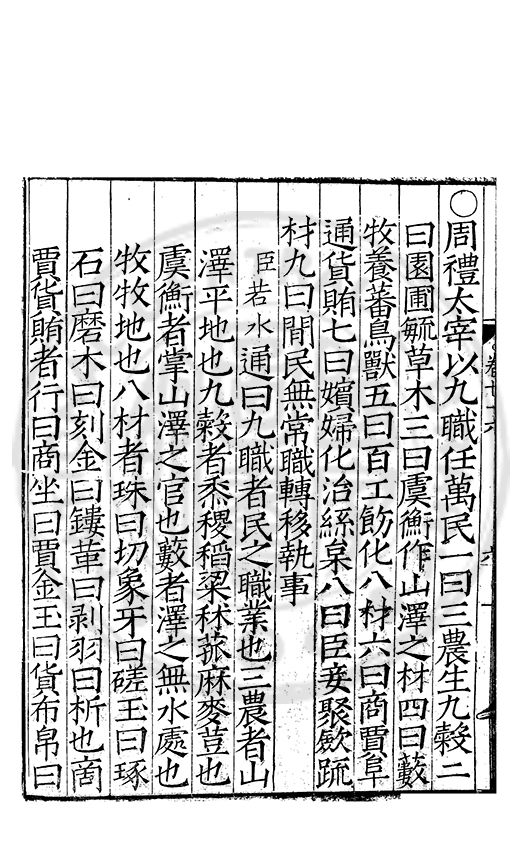 〇周禮太宰以九職任萬民一曰三農生九穀二
曰園圃毓草木三曰虞衡作山澤之材四曰藪
牧養蕃鳥獸五曰百工飭化八材六曰商賈阜
通貨賄七曰嬪婦化治絲枲八曰臣妾聚斂疏
材九曰閒民無常職轉移執事
臣若水通曰九職者民之職業也三農者山
澤平地也九穀者黍稷稻粱秫菰麻麥荳也
虞衡者掌山澤之官也藪者澤之無水處也
牧牧地也八材者珠曰切象牙曰磋玉曰琢
石曰磨木曰刻金曰鏤革曰剥羽曰析也商
賈貨賄者行曰商坐曰賈金玉曰貨布帛曰